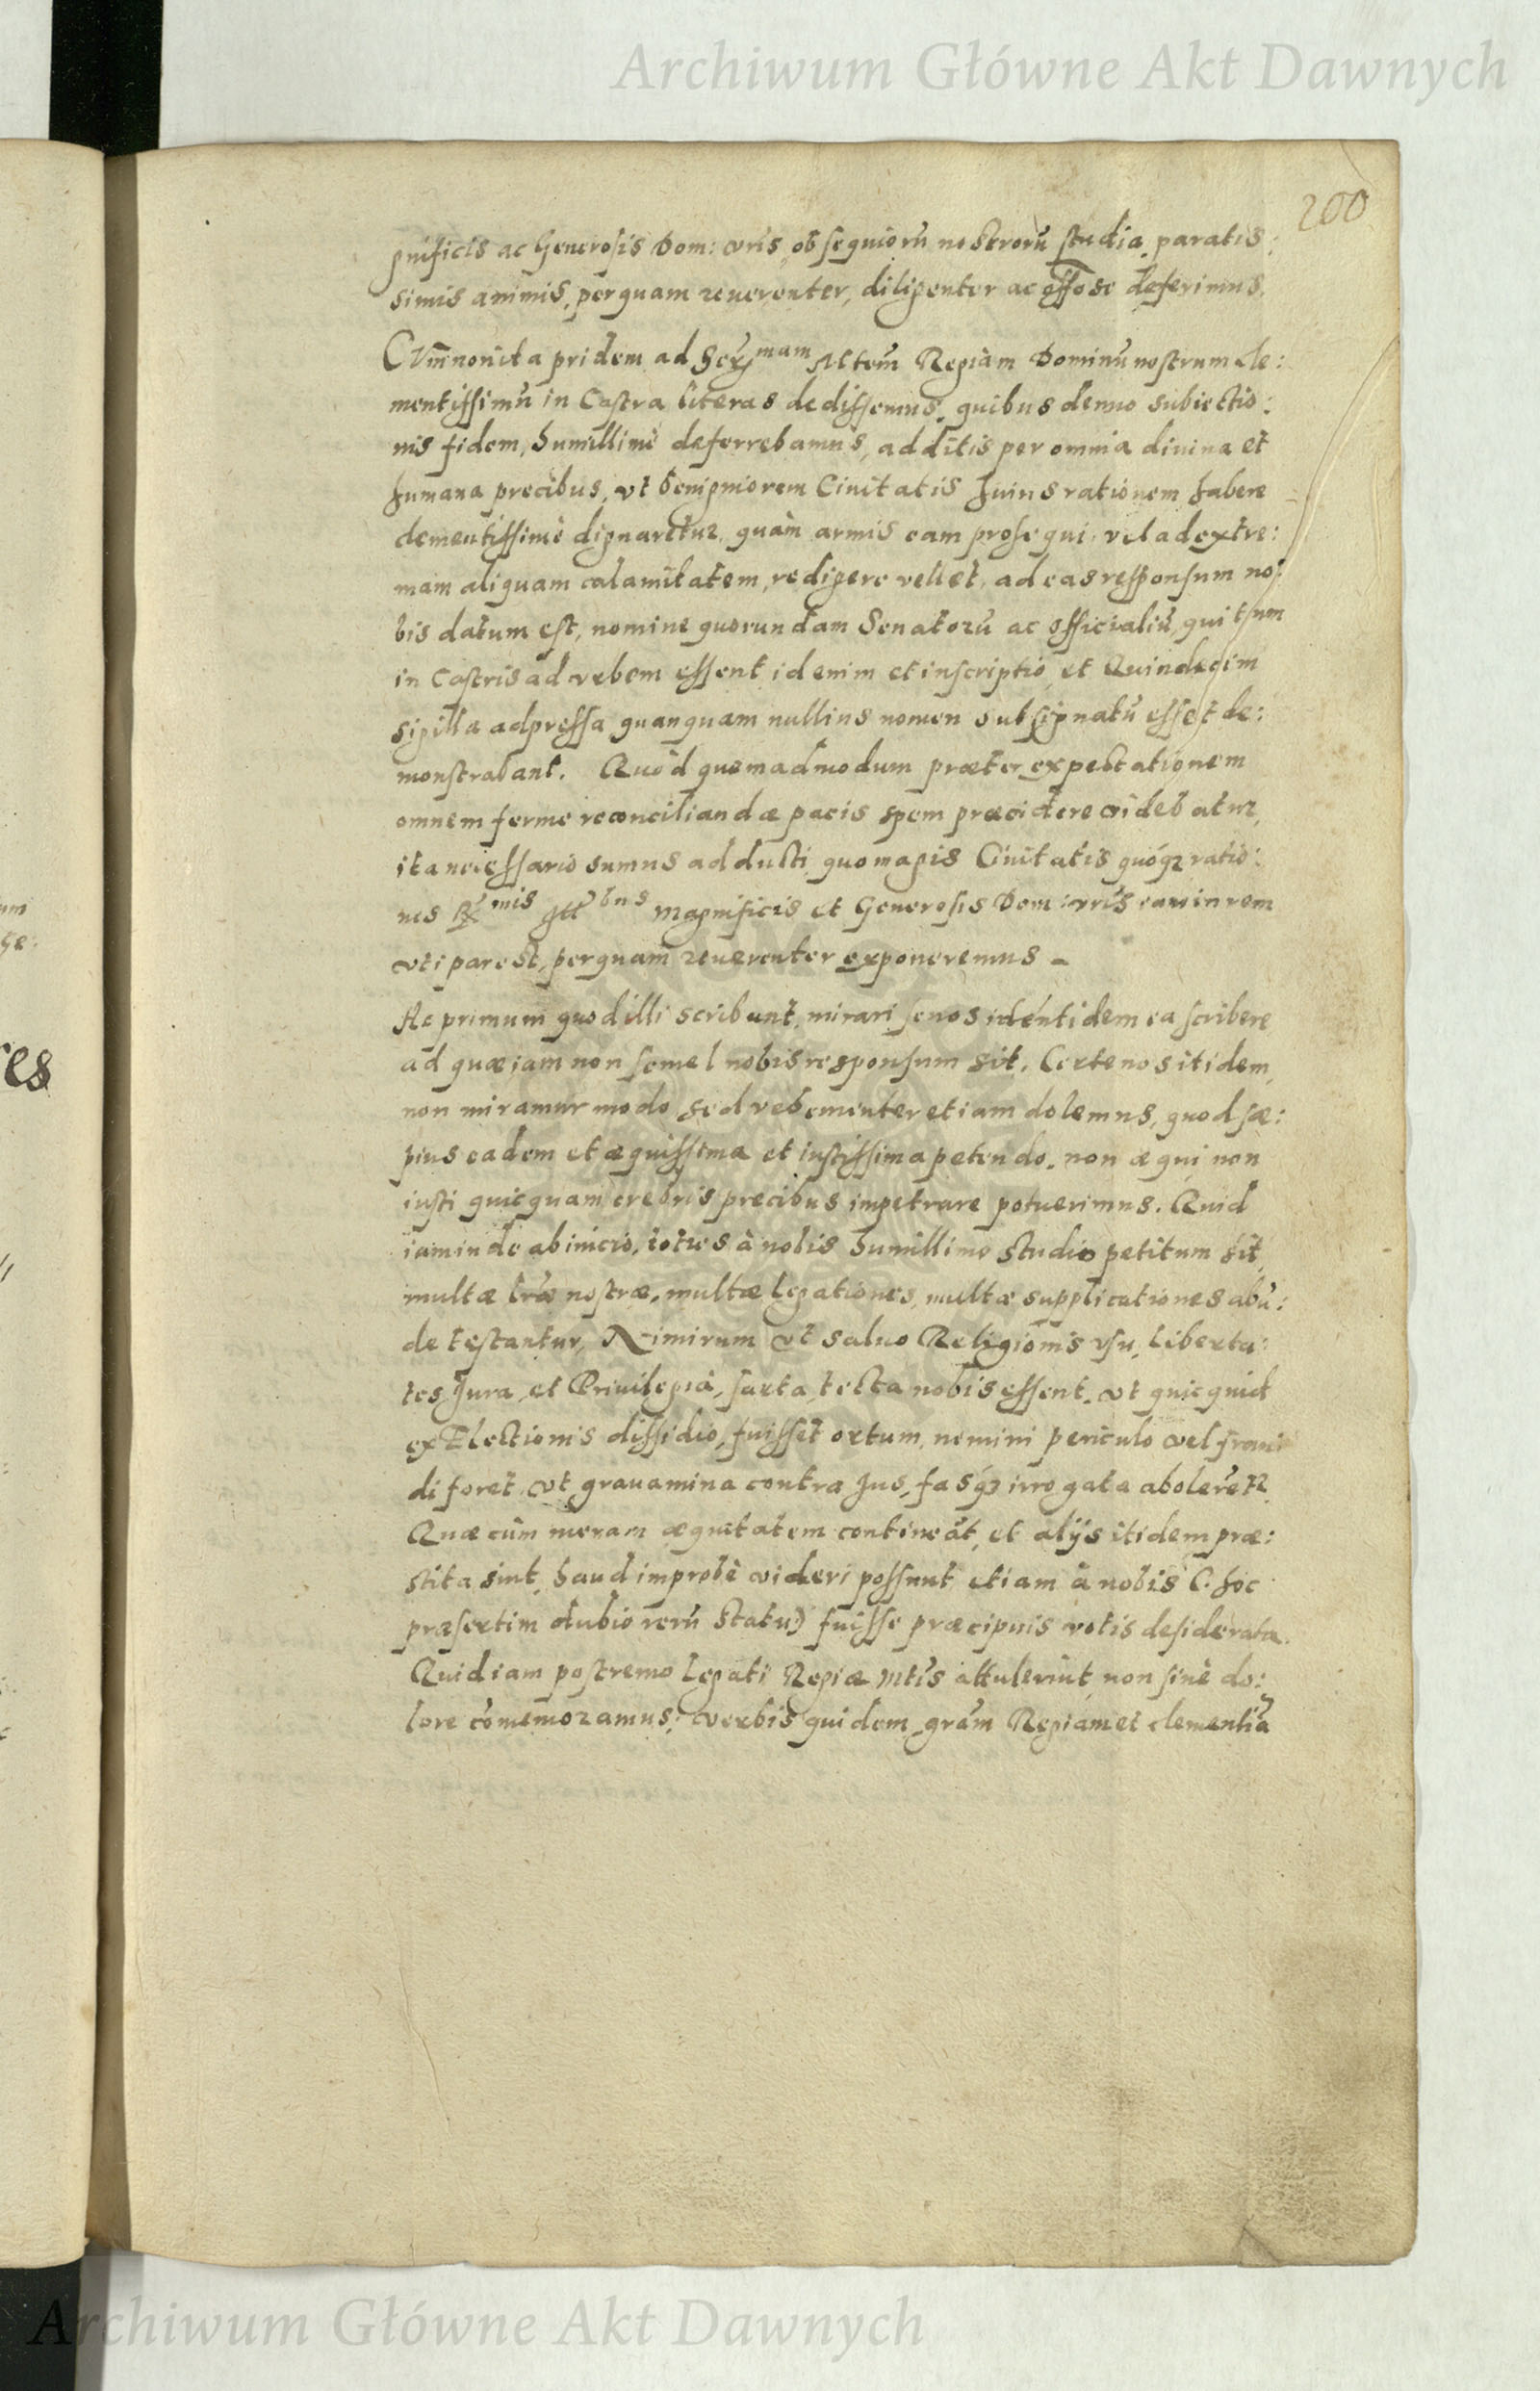 Archiwum Główne Akt Dawnych
200
gnificis ac Generosis Dom: vris, obsequiorū nostrorū studia, paratis:
simis animis, perquam reuerenter, diligenter ac offōse deferimus.
CVm nonita pridem ad Ser mam Mtem Regiam Dominū nostrum cle:
mentissimū in Castra literas dedissemus, quibus denuo subiectio:
nis fidem, humillimè deferrebamus, additis per omnia diuina et
humana precibus, vt benigniorem Ciuitatis huius rationem habere
clementissimè dignaretur, quàm armis eam prosequi, vel ad extre:
mam aliquam calamitatem, redigere vellet, ad eas responsum no:
bis datum est, nomine quorundam Senatorū ac officialiū, qui tum
in Castris ad vrbem essent id enim et inscriptio, et Quindecim
sigilla adpressa quanquam nullius nomen subsignatū esset de:
monstrabant. Quòd quemadmodum præter expectationem
omnem ferme reconciliandæ pacis spem præcidere videbatur,
ita necessario sumus adducti, quo magis Ciuitatis quóqz ratio:
nes R mis Ill bus Magnificis et Generosis Dom: vrīs eam in rem
vti par est, perquam reuerenter exponeremus
Ac primum quod illi scribunt, mirari se nos idéntidem ea scribere
ad quæ iam non semel nobis responsum sit. Certe nos itidem,
non miramur modo, sed vehementer etiam dolemus, quod sæ:
pius eadem et æquissima et iustissima petendo, non æqui non
iusti quicquam crebris precibus impetrare potuerimus. Quid
iam inde ab inicio, toties à nobis humillimo studio petitum sit,
multæ lræ nostræ, multæ legationes, multæ supplicationes abū:
de testantur, Nimirum vt saluo Religionis vsu, Liberta:
tes, Jura, et Priuilegia, sarta, tecta nobis essent, vt quicquid
ex Electionis dissidio, fuisset ortum, nemini periculo vel frau
di foret, vt grauamina contra Jus, fasq́z irrogata abolerētr.
Quæ cùm meram æquitatem contineāt, et alijs itidem præ:
stita sint, haud improbè videri possunt, etiam à nobis (hoc
præsertim dubio rerū statu) fuisse præcipuis votis desiderata.
Quid iam postremo Legati Regiæ Mtis attulerint, non sinè do:
lore cōmemoramus: verbis quidem, grām Regiam et clementiā
um
ge:
res
Archiwum Główne Akt Dawnych